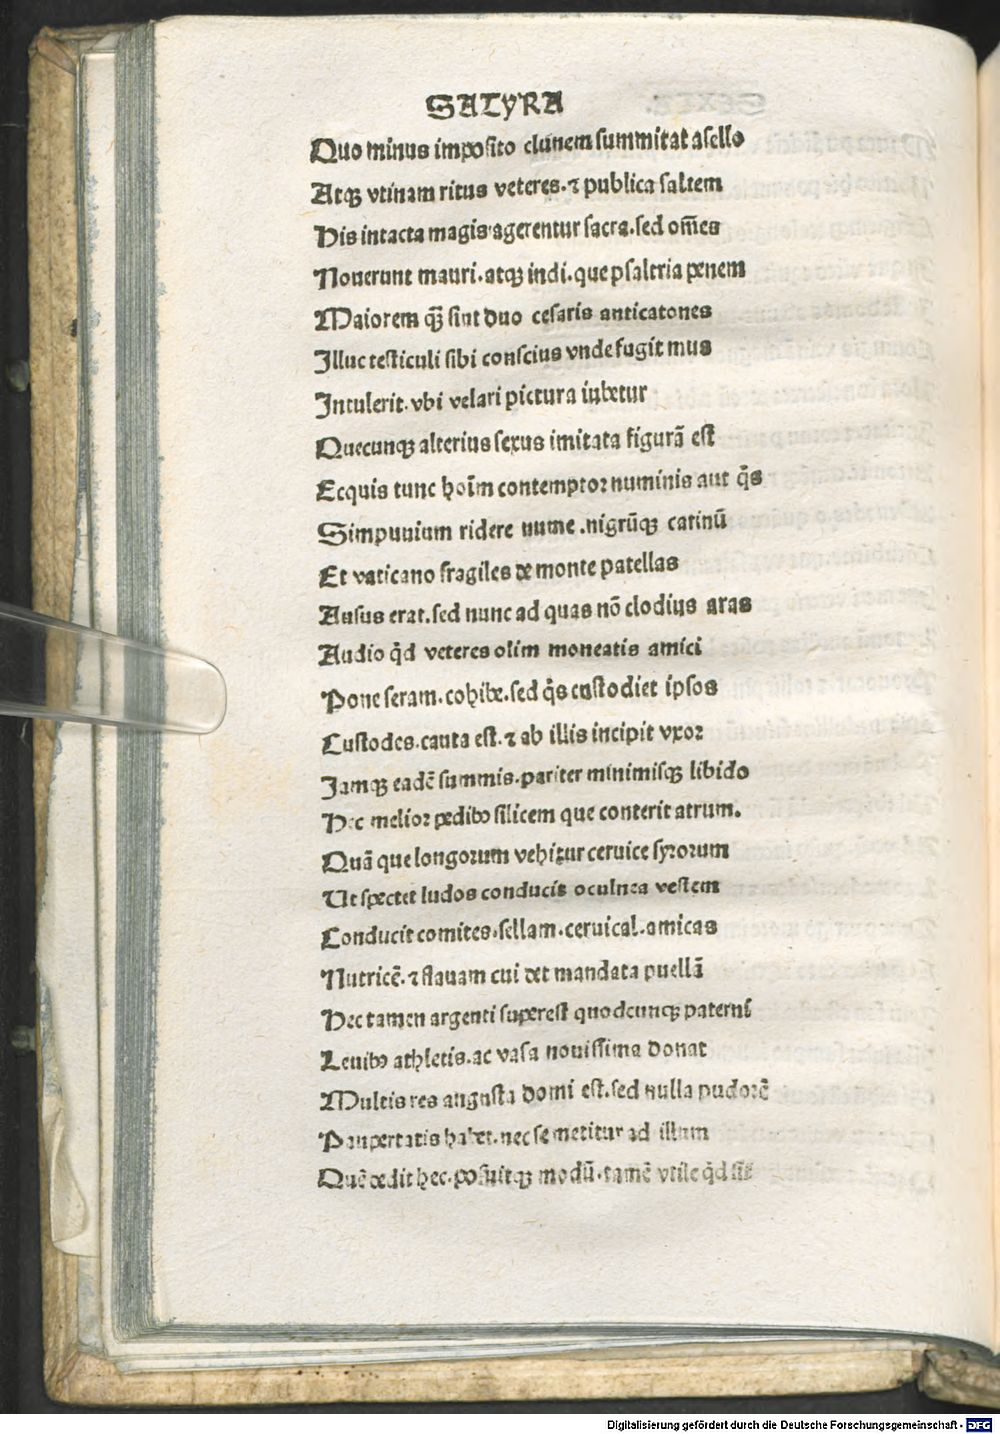 SATyRA
Quo minus imposito clunem summitat asello
Atqꝫ vtinam ritus veteres.⁊ publica saltem
His intacta magis agerentur sacra.sed om̄es
Nouerunt mauri.atqꝫ indi.que psaltria penem
Maiorem qꝫ̄ sint duo cesaris anticatones
Illuc testiculi sibi conscius vnde fugit mus
Intulerit.vbi velari pictura iubetur
Quecunqꝫ alterius sexus imitata figurā est
Ecquis tunc hoīm contemptor numinis aut q̇s
Simpuuium ridere nume .nigrūqꝫ catinū
Et vaticano fragiles de monte patellas
Ausus erat.sed nunc ad quas nō clodius aras
Audio q̇d veteres olim moneatis amici
Pone seram.cohibe.sed q̇s custodiet ipsos
Custodes.cauta est.⁊ ab illis incipit vxor
Iamqꝫ eadē summis.pariter minimisqꝫ libido
Hec melior pedibꝰ silicem que conterit atrum.
Quā que longorum vehitur ceruice syrorum
Ut spectet ludos conducit oculnea vestem
Conducit comites.sellam.ceruical.amicas
Nutricē.⁊ flauam cui det mandata puellā
Hec tamen argenti superest quodcunqꝫ paterni
Leuibꝰ athletis.ac vasa nouissima donat
Multis res angusta domi est.sed nulla pudorē
Paupertatis habet.nec se metitur ad illum
Quē dedit hec.posuitqꝫ modū.tamē vtile q̇d sit
Digitalisierung gefördert durch die Deutsche Forschungsgemeinschaft - DFG